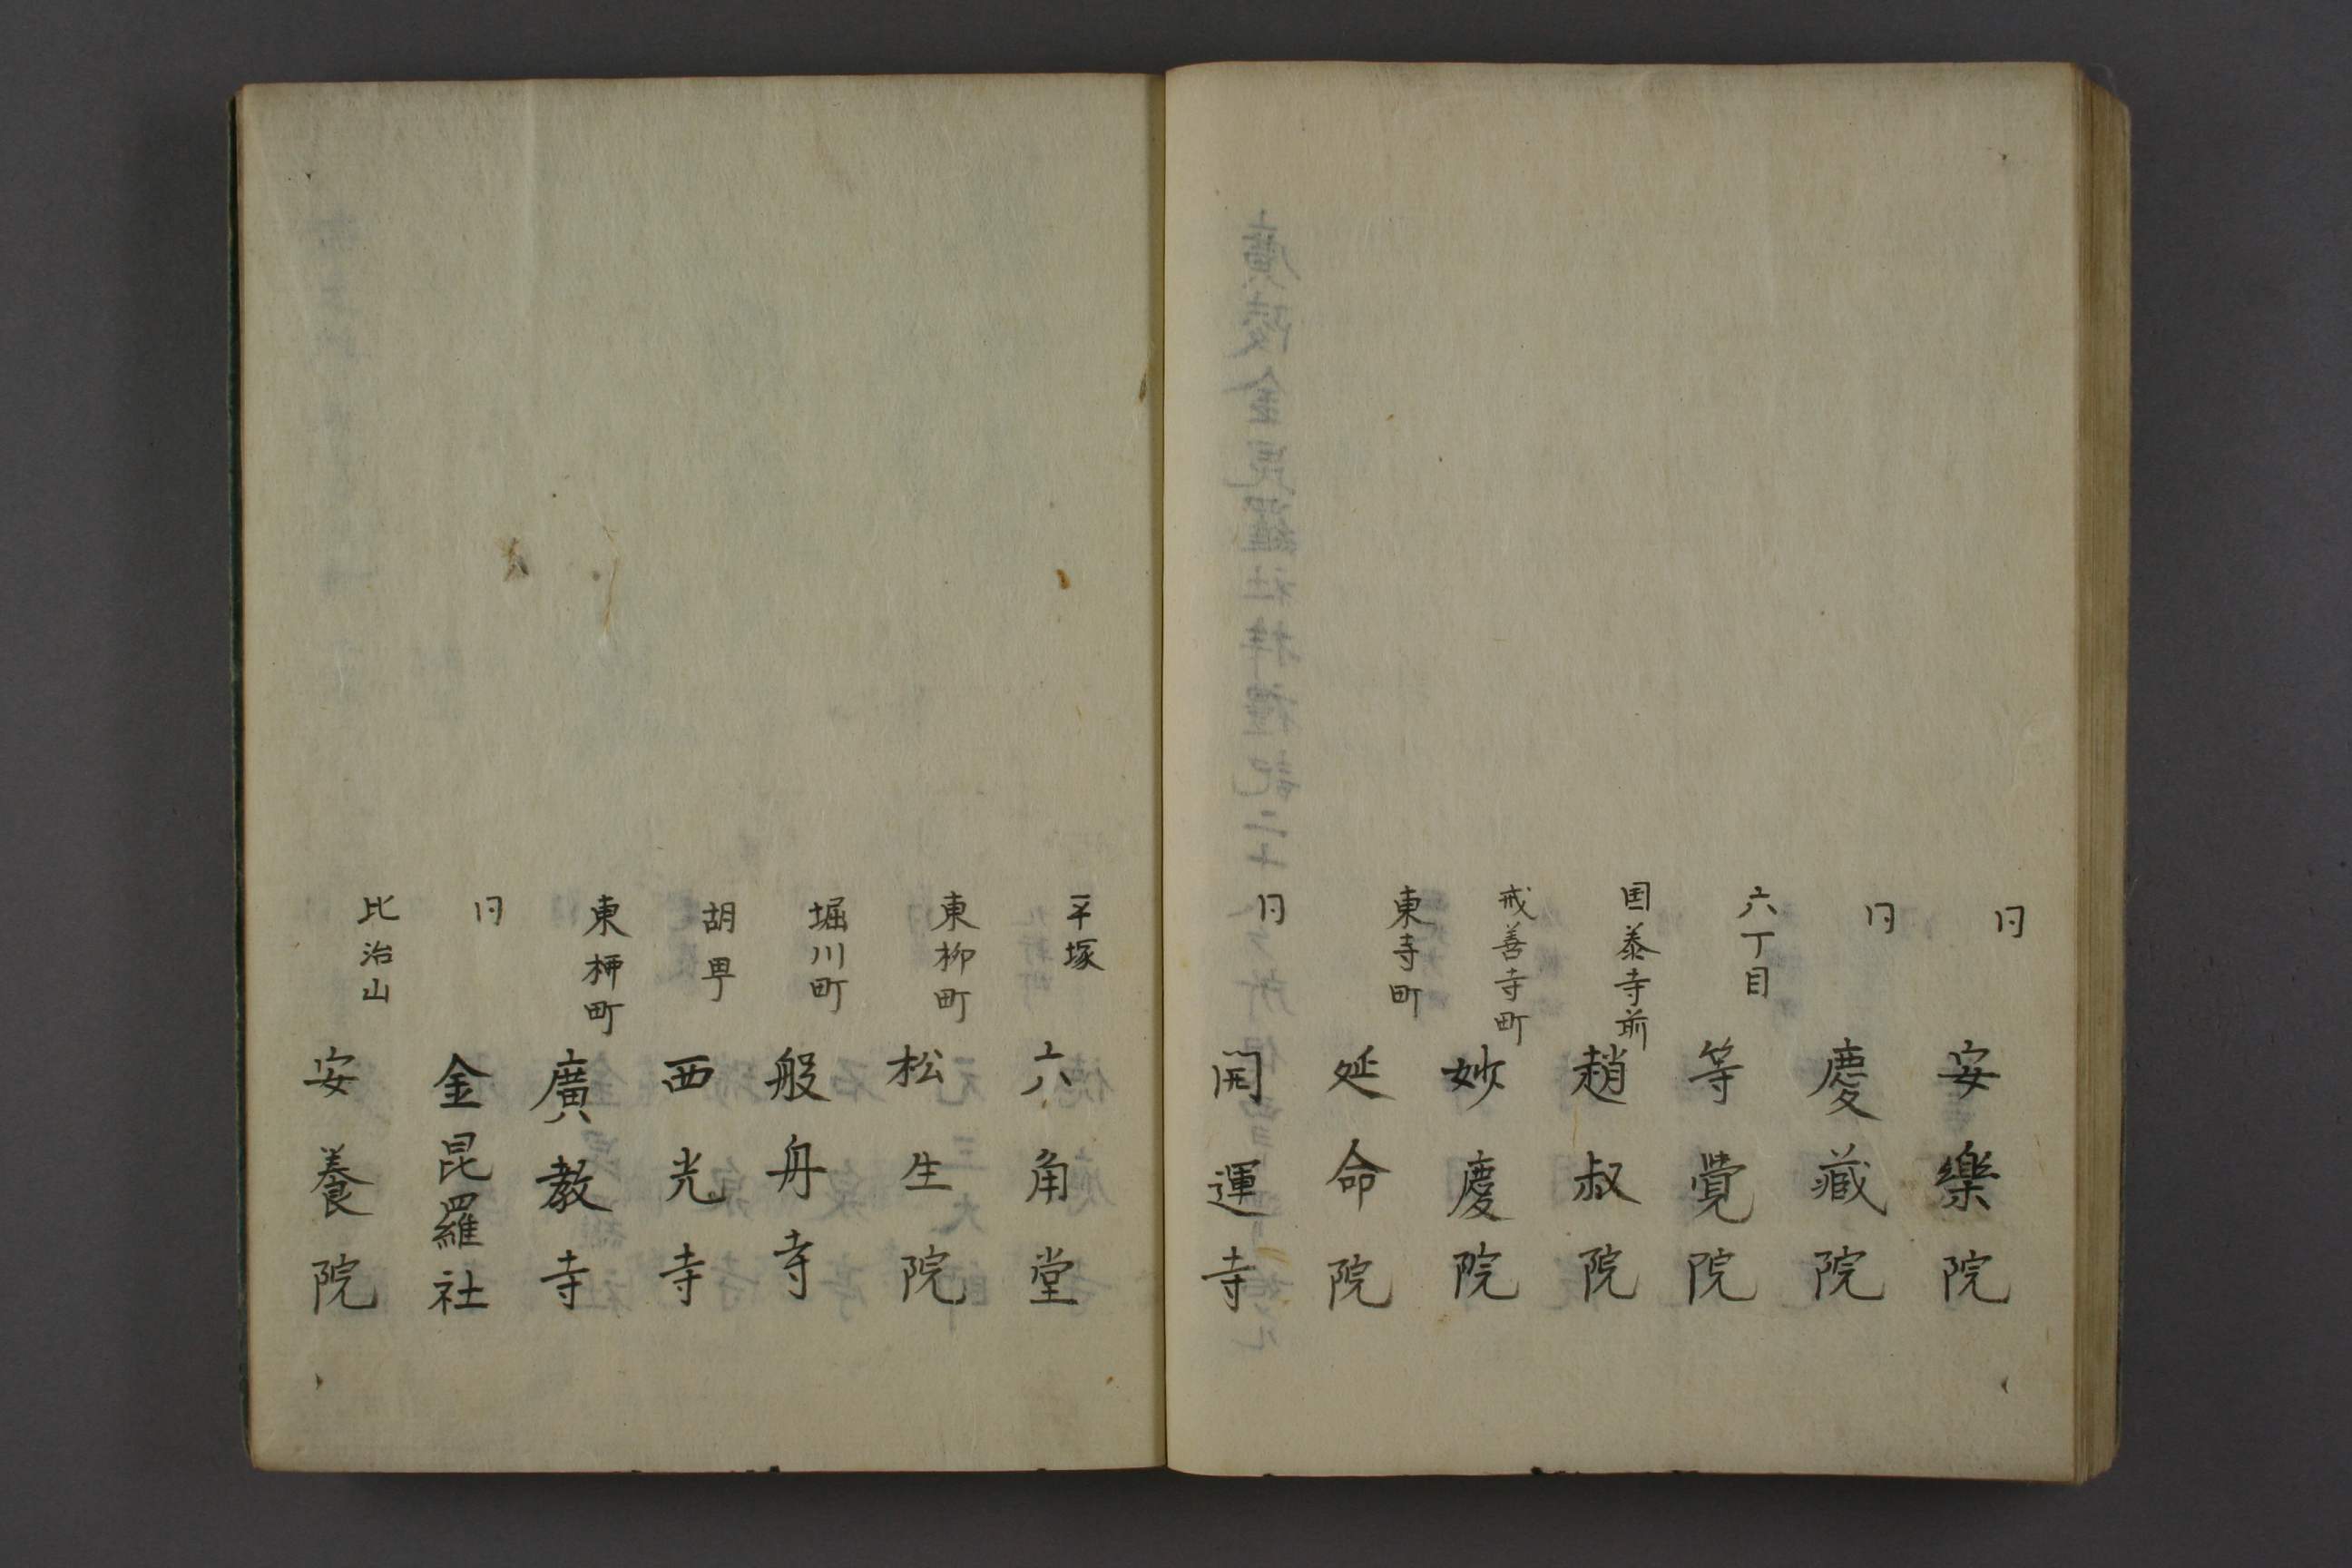 同 安樂院
同 慶藏院
六丁目 等覺院
国泰寺前 趙叔院
戒善寺町 妙慶院
東寺町 延命院
同 開運寺
平塚 六角堂
東柳町 松生院
堀川町 般舟寺
胡甼 西光寺
東柳町 廣教寺
同 金昆羅社
比治山 安養院